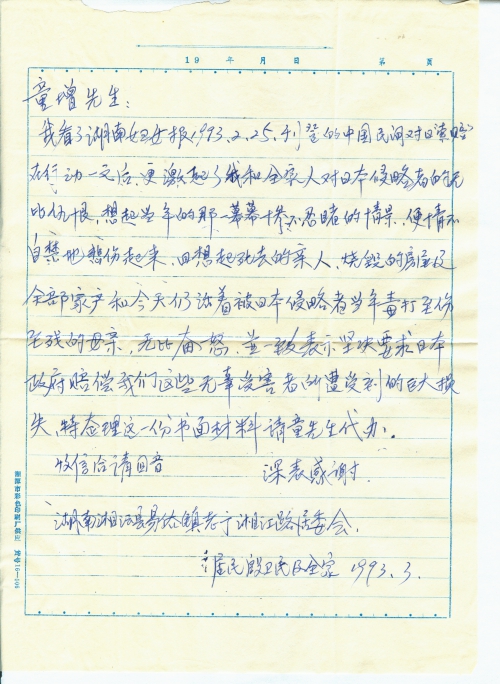 19 年 月 日 第 页
童增先生:
我看了湖南妇女报1993.2.25.刊登的中国民间对日索赔
在行动一文后,更激起了我和全家人对日本侵略者的无
比仇恨,想起当年的那一幕幕惨不忍睹的情景,便情不
自禁地悲伤起来,回想起死去的亲人,烧毁的房屋及
全部家产和今天仍活着被日本侵略者当年毒打至伤
至残的母亲,无比奋怒,并一致表示坚决要求日本
政府赔偿我们这些无辜受害者所遭受到的巨大损
失,特整理这一份书面材料请童先生代办。
收信后请回音 深表感谢.
湖南湘江路居委会.
居民段卫民及全家 1993.3.